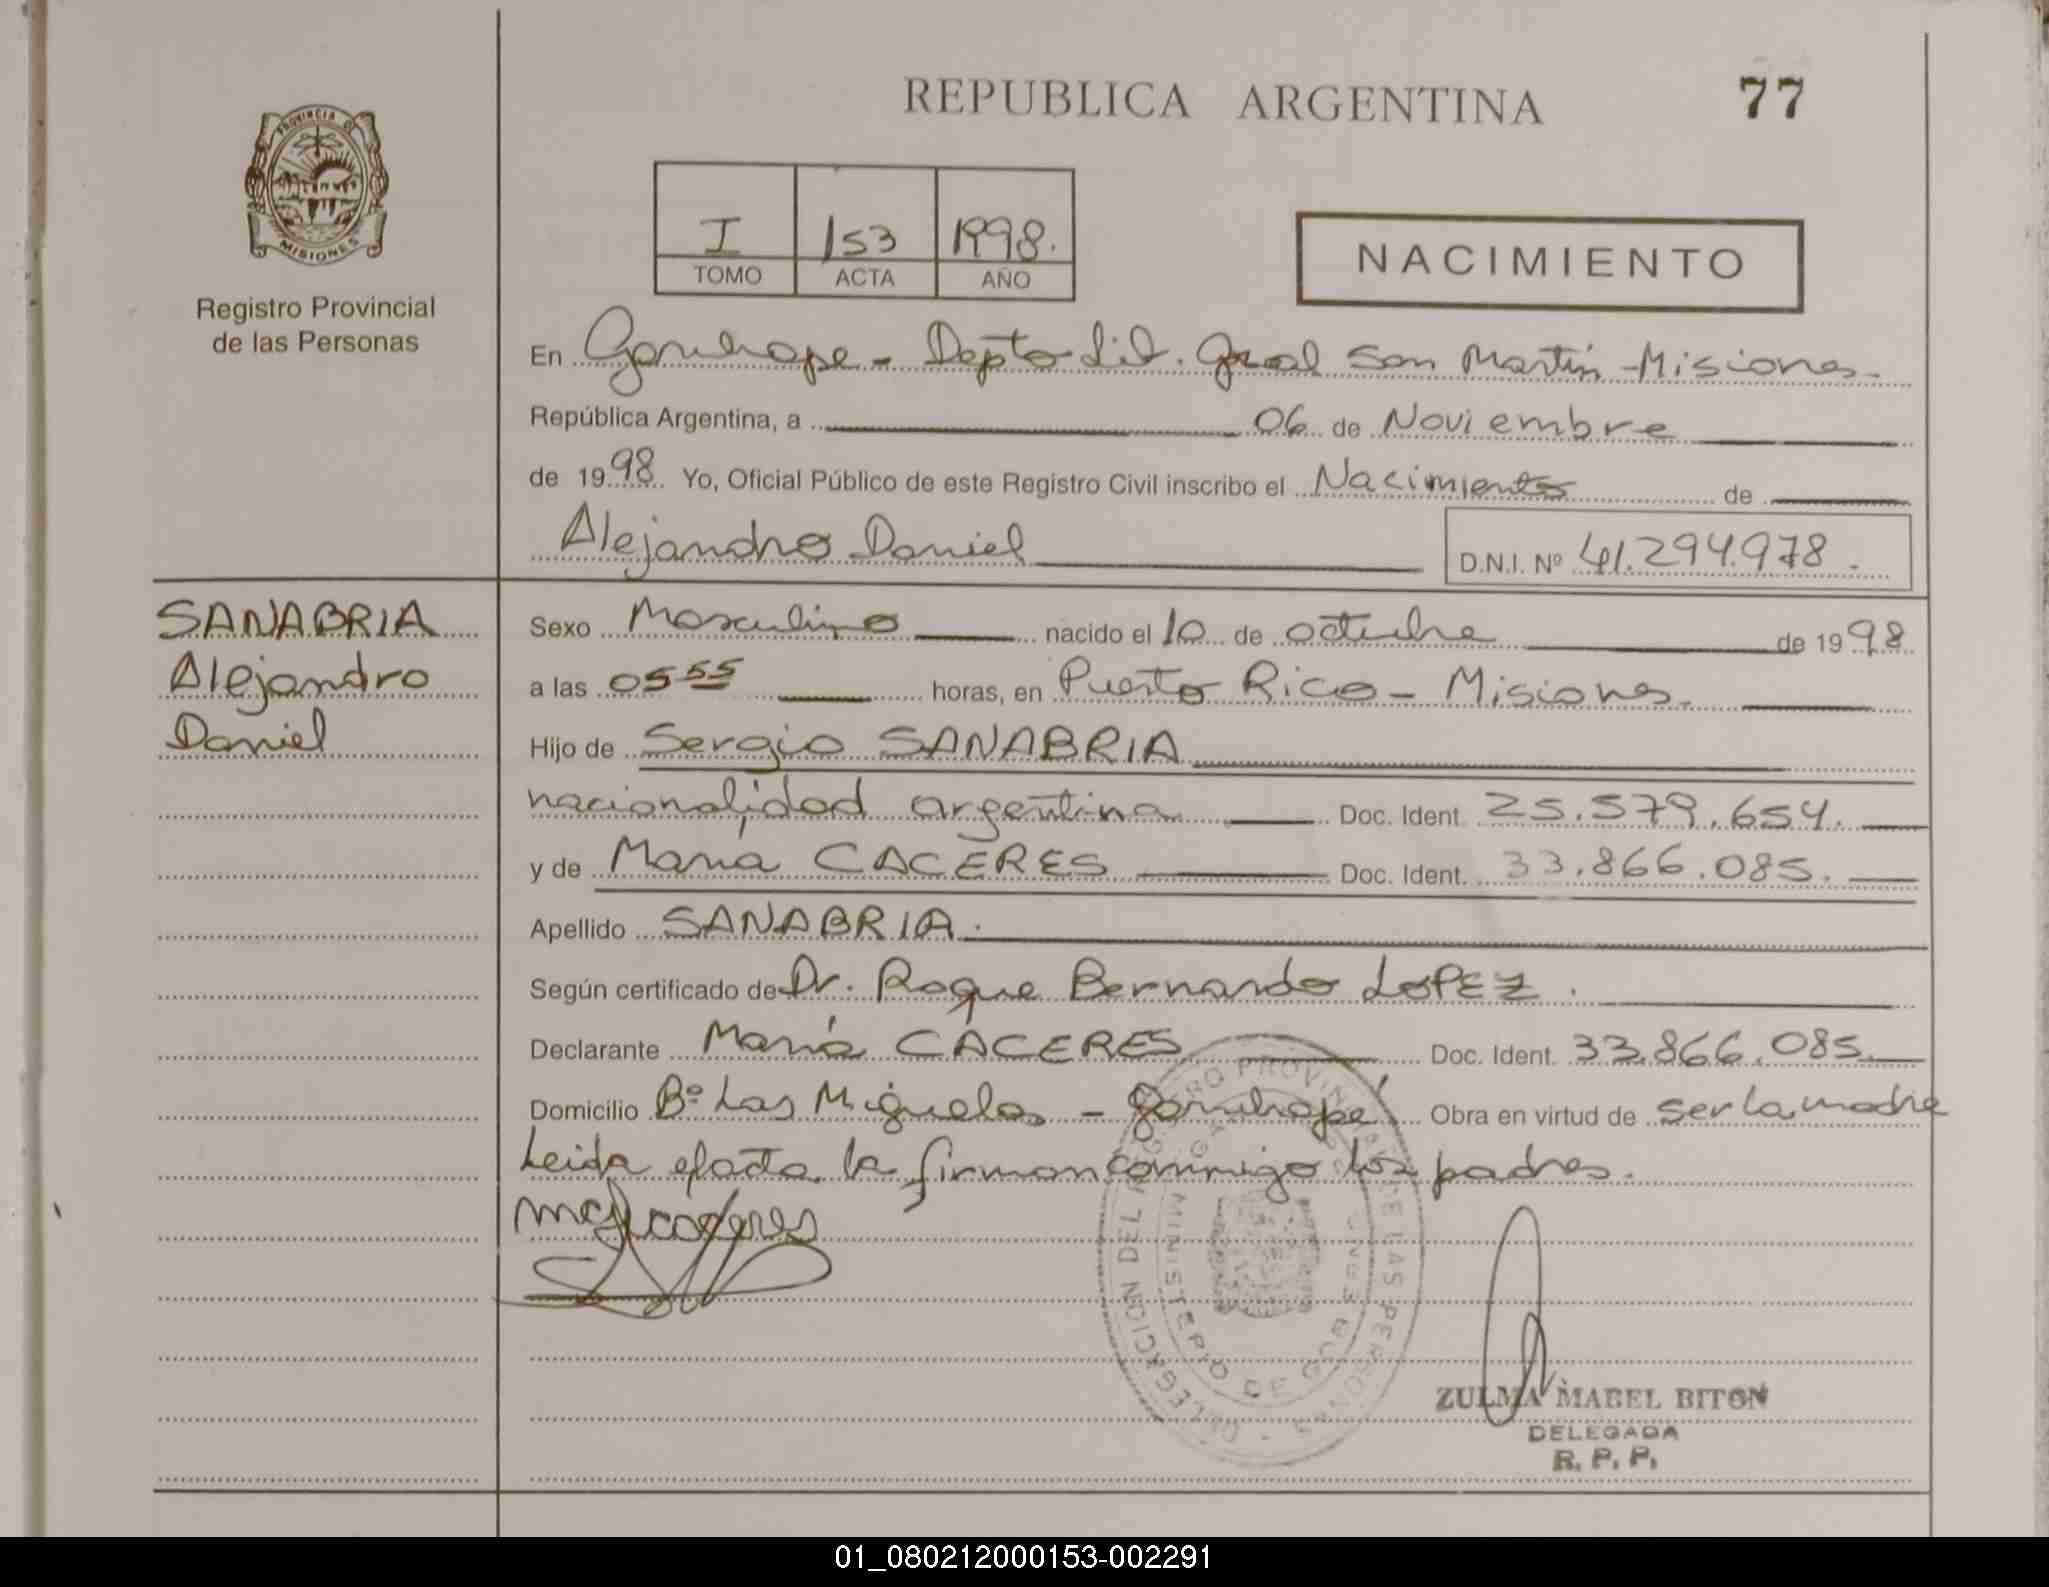 REPUBLICA ARGENTINA
77
PROVINCIA DE
MISIONES
Registro Provincial
de las Personas
I 153 1998.
TOMO ACTA AÑO
NACIMIENTO
En Garuhape - Depto Lib. Gral San Martín - Misiones -
República Argentina, a 06 de Noviembre
de 1998 Yo, Oficial Público de este Registro Civil inscribo el Nacimiento de
Alejandro Daniel
D.N.I. Nº 41.294.978.
SANABRIA
Alejandro
Daniel
Sexo Masculino nacido el 10 de octubre de 1998
a las 05 55 horas, en Puerto Rico - Misiones.
Hijo de Sergio SANABRIA
nacionalidad argentina Doc. Ident. 25.579.654.
y de Maria CACERES Doc. Ident. 33.866.085.
Apellido SANABRIA.
Según certificado de Dr. Roque Bernardo LOPEZ.
Declarante María CACERES Doc. Ident. 33.866.085.
Domicilio Bº Las Miguelas - Garuhape, Obra en virtud de ser la madre
Leida el acta la firman conmigo los padres.
caceres
DELEGACION DEL REGISTRO PROVINCIAL DE LAS PERSONAS
MINISTERIO DE GOB
ZULMA MABEL BITON
DELEGADA
R. P. P.
01_080212000153-002291